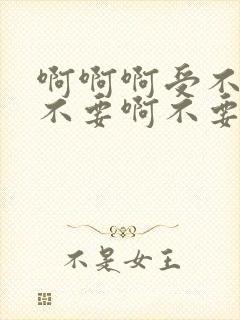 啊啊啊受不
不要啊不要
不是女王